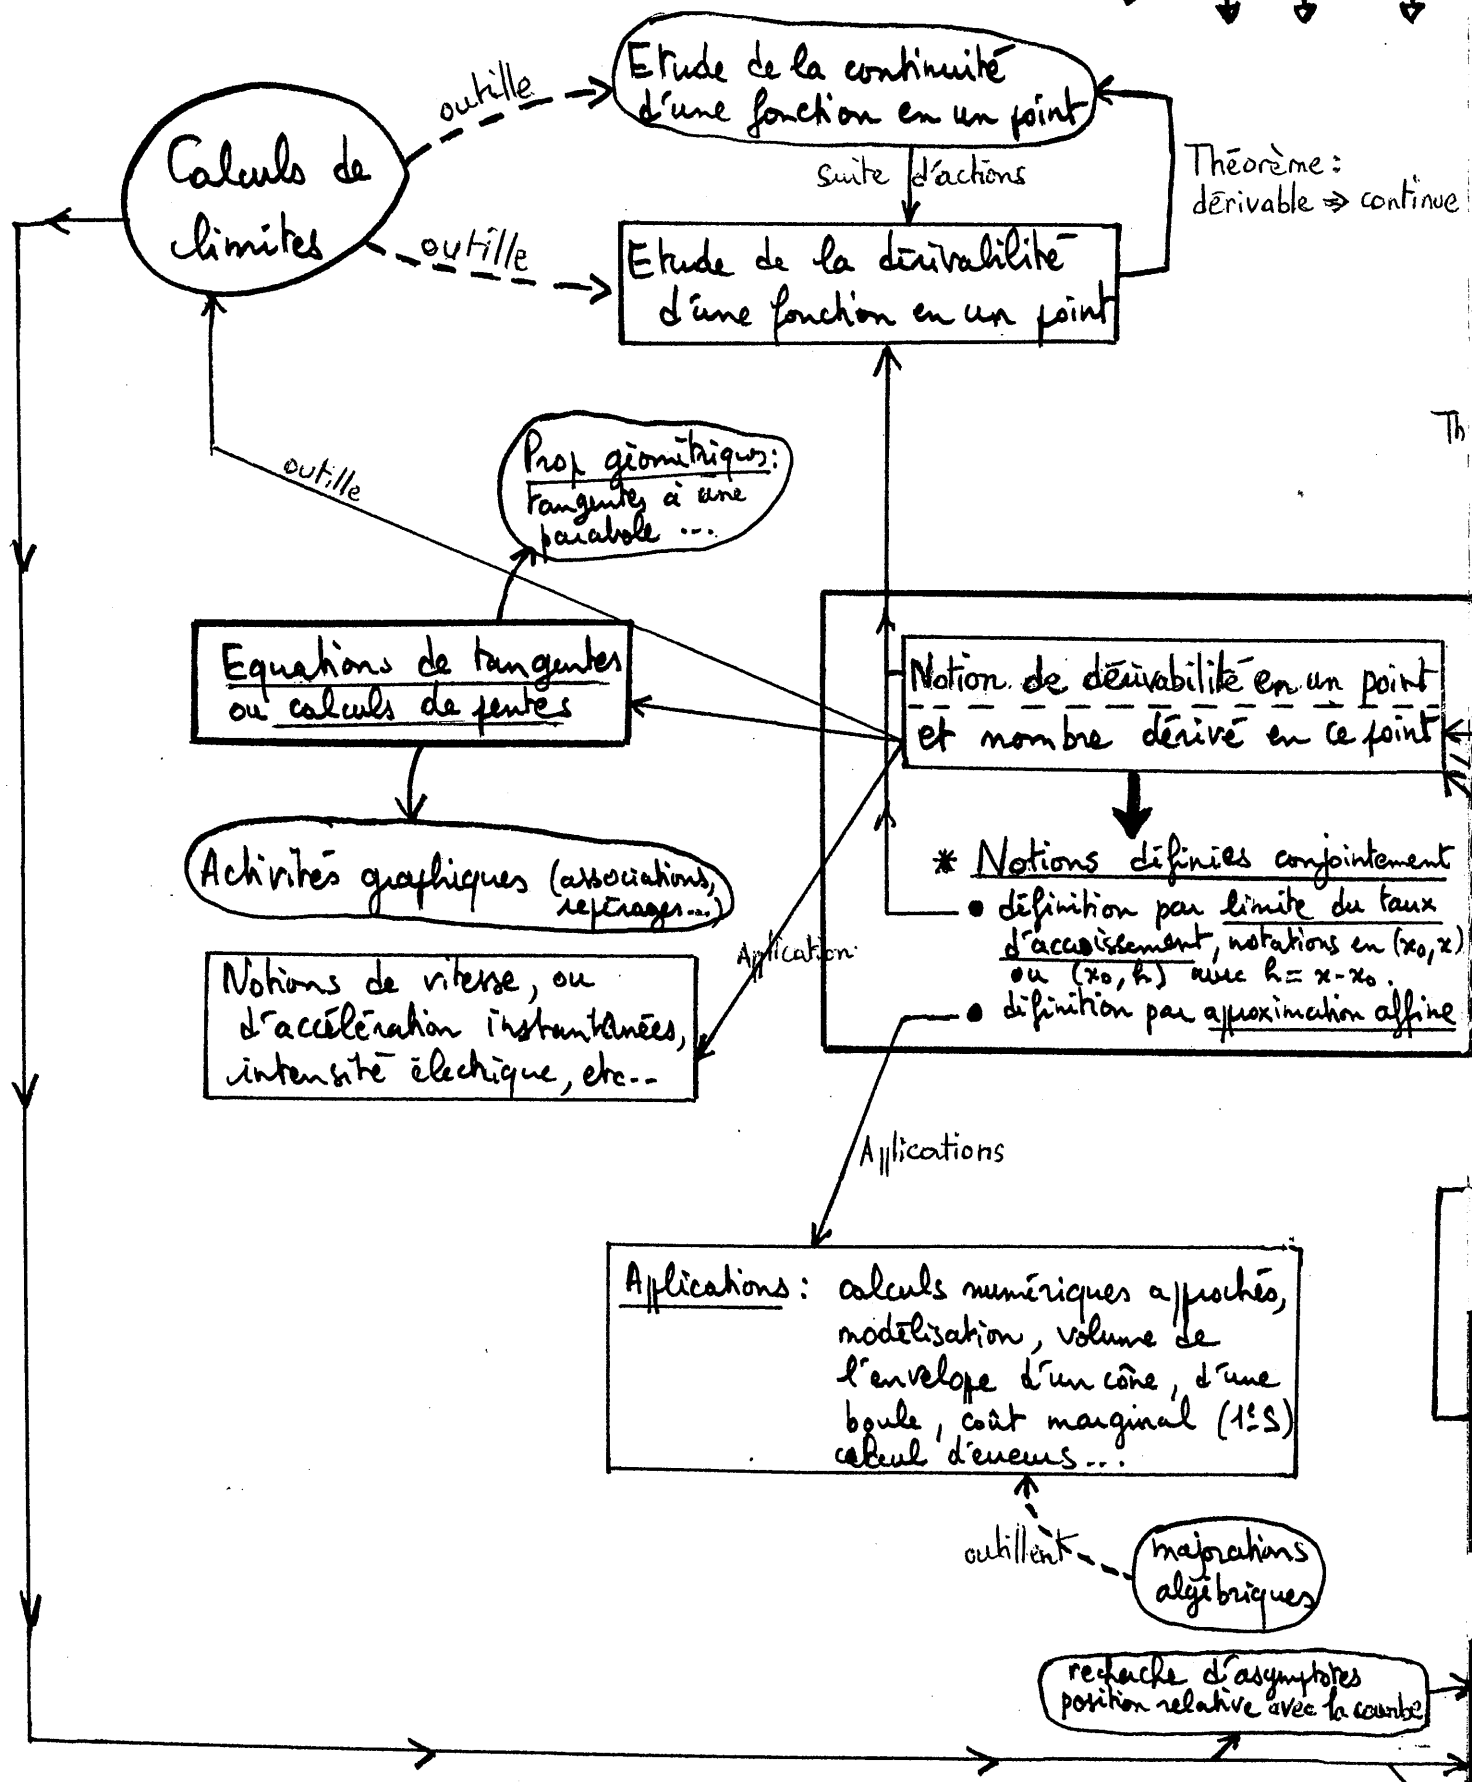 Etude de la continuité
d'une fonction en un point
outille
Calculs de
limites
suite d'actions
Théorème :
dérivable ⇒ continue
outille
Etude de la dérivabilité
d'une fonction en un point
Th
outille
Prop géométriques :
tangentes à une
parabole ...
Equations de tangentes
ou calculs de pentes
Notion de dérivabilité en un point
et nombre dérivé en ce point
Activités graphiques (associations,
repérages...)
* Notions définies conjointement
• définition par limite du taux
d'accroissement, notations en (x₀, x)
ou (x₀, h) avec h = x - x₀.
• définition par approximation affine
Application
Notions de vitesse, ou
d'accélération instantanées,
intensité électrique, etc...
Applications
Applications : calculs numériques approchés,
modélisation, volume de
l'envelope d'un cône, d'une
boule, coût marginal (1ᵉ S)
calcul d'erreurs...
outillent
majorations
algébriques
recherche d'asymptotes
position relative avec la courbe